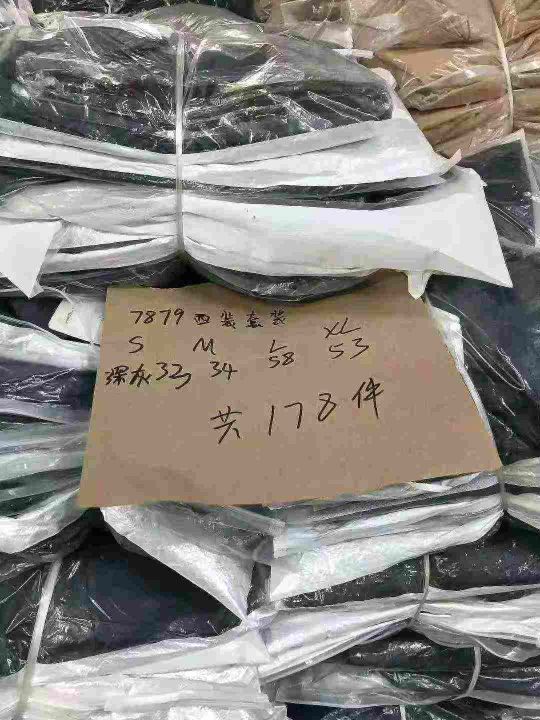 7879西装套装
S M L XL
深灰 33 34 58 53
共178件